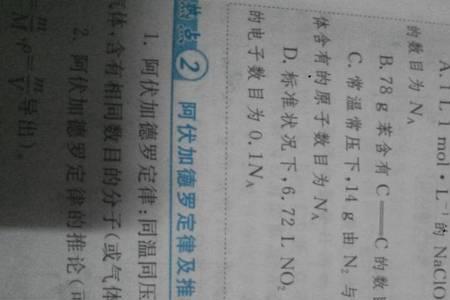 A. 1 L 1 mol·L⁻¹ 的 NaClO
的数目为 N_A
B. 78 g 苯含有 C══C 的数
C. 常温常压下,14 g 由 N₂ 与
体含有的原子数目为 N_A
D. 标准状况下,6.72 L NO₂
的电子数目为 0.1N_A
热点 2 阿伏加德罗定律及推
1. 阿伏加德罗定律:同温同压
气体,含有相同数目的分子(或气体
2. 阿伏加德罗定律的推论(可
= m/M、ρ = m/V 导出)。